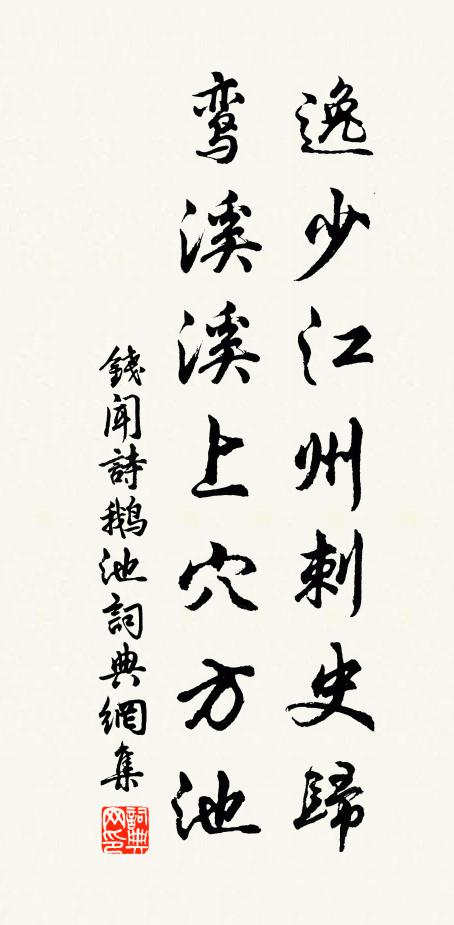 逸少江州刺史歸
鸾溪溪上穴方池
錢聞詩鵝池詞典網集
詞典网印